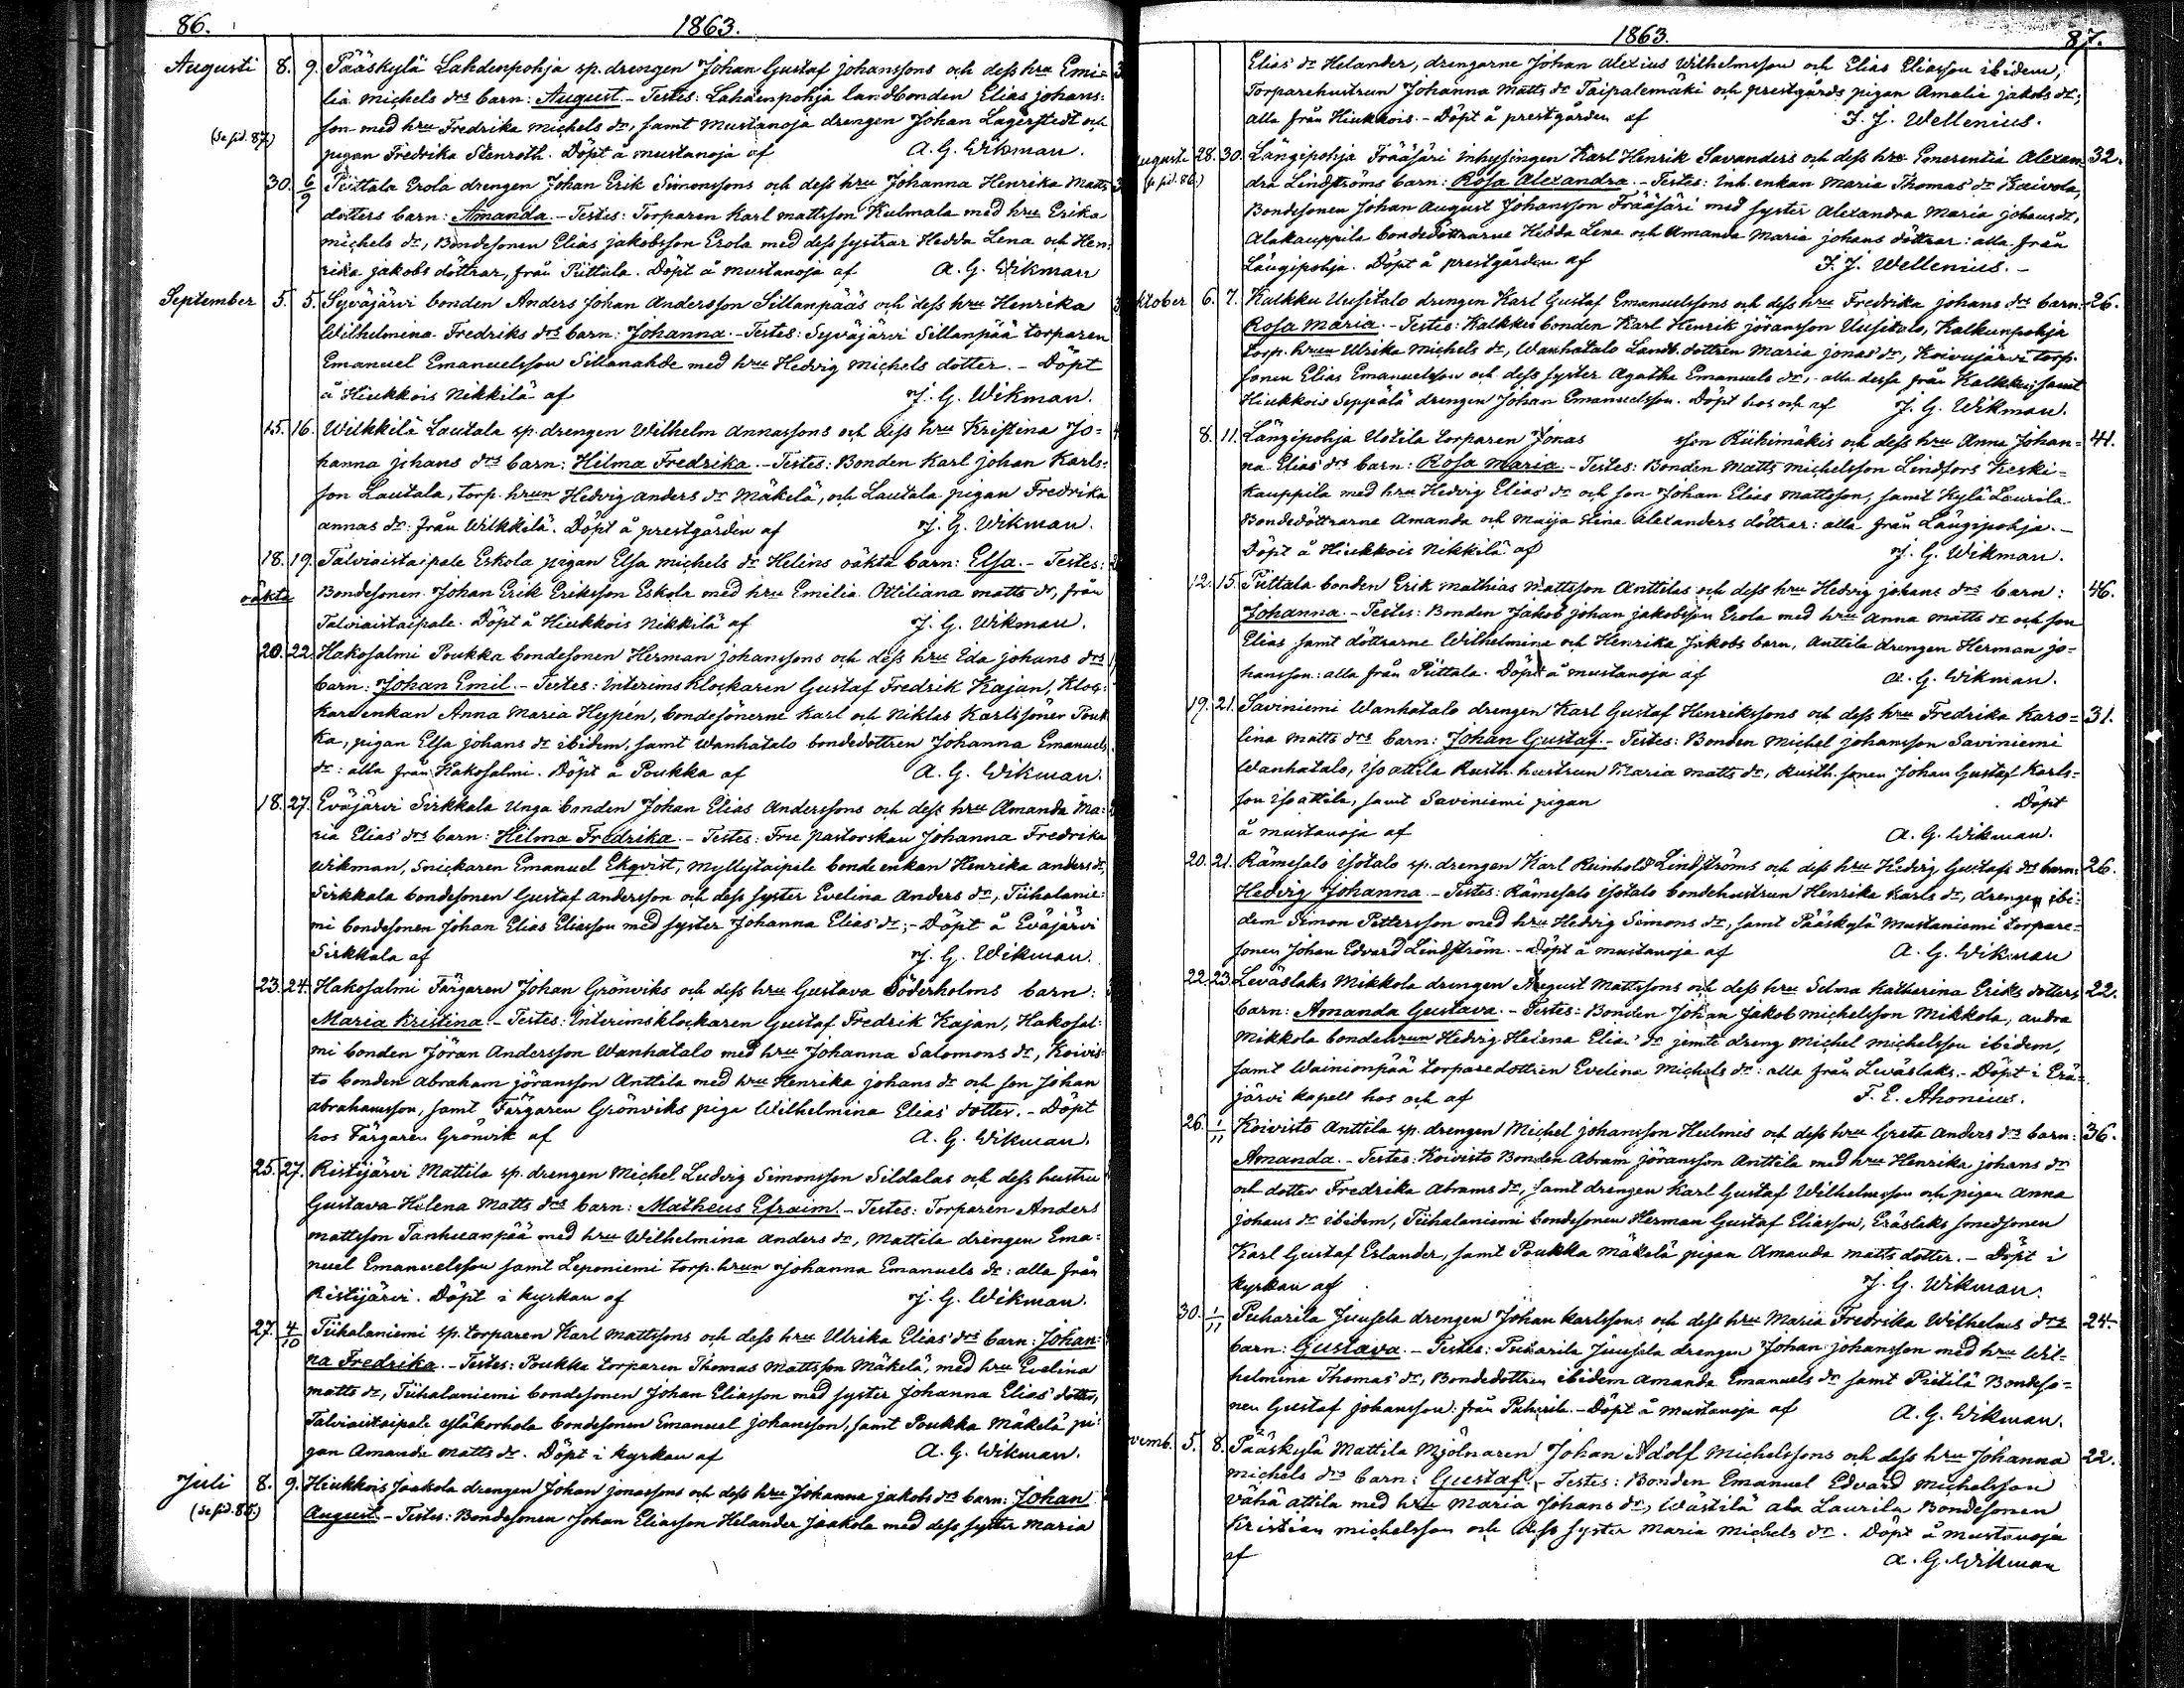 86. 1863.
Augusti 8. 9. Pääskylä Lahdenpohja sp. drengen Johan Gustaf Johanssons och dess hru Emi=
lia Michels drs barn: August. - Testes: Lahdenpohja landbonden Elias Johans=
son med hru Fredrika Michels dr, samt Mustanoja drengen Johan Lagerstedt och
(Se sid. 87.) pigan Fredrika Stenroth. Döpt å Mustanoja af A. G. Wikman.
30. 6/9 Pittala Erola drengen Johan Erik Simonssons och dess hru Johanna Henrika Matts
dotters barn: Amanda. - Testes: Torparen Karl Mattsson Kulmala med hru Erika
Michels dr, Bondesonen Elias Jakobsson Erola med dess systrar Hedda Lena och Hen=
rika Jakobs döttrar, från Pittala. Döpt å Mustanoja af A. G. Wikman
September 5. 5. Syväjärvi bonden Anders Johan Andersson Sillanpääs och dess hru Henrika
Wilhelmina Fredriks drs barn: Johanna. - Testes: Syväjärvi Sillanpää torparen
Emanuel Emanuelsson Sillanahde med hru Hedvig Michels dotter. - Döpt
å Hiukkois Nikkilä af J. G. Wikman.
15. 16. Wilkkilä Lautala sp. drengen Wilhelm Annassons och dess hru Kristina Jo=
hanna Johans drs barn: Hilma Fredrika. - Testes: Bonden Karl Johan Karls=
son Lautala, torp. hrun Hedvig Anders dr Mäkelä, och Lautala pigan Fredrika
Annas dr: från Wilkkilä. Döpt å prestgården af J. G. Wikman.
18. 19. Talviaistaipale Eskola pigan Elsa Michels dr Helins oäkta barn: Elsa. - Testes:
oäkta Bondesonen Johan Erik Eriksson Eskola med hru Emilia Ottiliana Matts dr, från
Talviaistaipale. Döpt å Hiukkois Nikkilä af J. G. Wikman.
20. 22. Hakosalmi Poukka bondesonen Herman Johanssons och dess hru Eda Johans drs
barn: Johan Emil. - Testes: Interims Klockaren Gustaf Fredrik Kajan, Kloc=
kare enkan Anna Maria Hypén, bondesönerne Karl och Niklas Karlssöner Pouk
ka, pigan Elsa Johans dr ibidem, samt Wanhatalo bondedottren Johanna Emanuels
dr: alla från Hakosalmi. Döpt å Poukka af A. G. Wikman.
18. 27. Eväjärvi Sirkkala unga bonden Johan Elias Anderssons och dess hru Amanda Ma=
ria Elias drs barn: Hilma Fredrika. - Testes: Fru pastorskan Johanna Fredrika
Wikman, Snickaren Emanuel Ekqvist, Myllytaipale bonde enkan Henrika Anders dr,
Sirkkala bondesonen Gustaf Andersson och dess syster Evelina Anders dr, Tiihalanie=
mi bondesonen Johan Elias Eliasson med syster Johanna Elias dr; - Döpt å Eväjärvi
Sirkkala af J. G. Wikman.
23. 24. Hakosalmi Färgaren Johan Grönviks och dess hru Gustava Söderholms barn:
Maria Kristina. - Testes: Interimsklockaren Gustaf Fredrik Kajan, Hakosal=
mi bonden Jöran Andersson Wanhatalo med hru Johanna Salomons dr, Koivis=
to bonden Abraham Jöransson Anttila med hru Henrika Johans dr och son Johan
Abrahamsson, samt Färgaren Grönviks piga Wilhelmina Elias dotter. - Döpt
hos Färgaren Grönvik af A. G. Wikman.
25. 27. Ristijärvi Mattila sp. drengen Michel Ludvig Simonsson Sildalas och dess hustru
Gustava Helena Matts drs barn: Matheus Efraim. - Testes: Torparen Anders
Mattsson Tanhuanpää med hru Wilhelmina Anders dr, Mattila drengen Ema=
nuel Emanuelsson samt Leponiemi torp. hrun Johanna Emanuels dr: alla från
Ristijärvi. Döpt i kyrkan af J. G. Wikman.
27. 4/10 Tiihalaniemi sp. torparen Karl Mattssons och dess hru Ulrika Elias drs barn: Johan=
na Fredrika. - Testes: Poukka torparen Thomas Mattsson Mäkelä, med hru Evelina
Matts dr, Tiihalaniemi bondesonen Johan Eliasson med syster Johanna Elias dotter,
Talviaistaipale Yläkorhola bondesonen Emanuel Johansson, samt Poukka Mäkelä pi=
gan Amanda Matts dr. Döpt i kyrkan af A. G. Wikman.
Juli 8. 9. Hiukkois Jaakola drengen Johan Jonassons och dess hru Johanna Jakobs drs barn: Johan
(Se sid. 85.) August. - Testes: Bondesonen Johan Eliasson Helander Jaakola med dess syster Maria
1863. 87.
Elias dr Helander, drengarne Johan Alexius Wilhelmsson och Elias Eliasson ibidem,
Torparehustrun Johanna Matts dr Taipalemäki och prestgårds pigan Amalia Jakobs dr;
alla från Hiukkois. - Döpt å prestgården af F. J. Wellenius.
Augusti 28. 30. Längipohja Frääsäri inhysingen Karl Henrik Savanders och dess hru Emerentia Alexan 32.
(Se sid. 86.) dra Lindströms barn: Rosa Alexandra. - Testes: Inh. enkan Maria Thomas dr Kaivola,
Bondesonen Johan August Johansson Frääsäri med syster Alexandra Maria Johans dr,
Alakauppila bondedöttrarne Hedda Lena och Amanda Maria Johans döttrar: alla från
Längipohja. Döpt å prestgården af F. J. Wellenius. -
ktober 6. 7. Kalkku Uusitalo drengen Karl Gustaf Emanuelssons och dess hru Fredrika Johans drs barn: 26.
Rosa Maria. - Testes: Kalkku bonden Karl Henrik Jöransson Uusitalo, Kalkunpohja
torp. hrun Ulrika Michels dr, Wanhatalo Landb. dottren Maria Jonas dr, Koivujärvi torp.
sonen Elias Emanuelsson och dess syster Agatha Emanuels dr, - alla dessa från Kalkku, samt
Hiukkois Seppälä drengen Johan Emanuelsson. Döpt hos och af J. G. Wikman.
8. 11. Längipohja Uotila torparen Jonas sson Riihimäkis och dess hru Anna Johan= 41.
na Elias drs barn: Rosa Maria. - Testes: Bonden Matts Michelsson Lindfors Keski=
kauppila med hru Hedvig Elias dr och son Johan Elias Mattsson, samt Kylä Laurila
Bondedöttrarne Amanda och Maija Stina Alexanders döttrar: alla från Längipohja. -
Döpt å Hiukkois Nikkilä af J. G. Wikman.
12. 15. Pittala bonden Erik Mathias Mattsson Anttilas och dess hru Hedvig Johans drs barn: 46.
Johanna. - Testes: Bonden Jakob Johan Jakobsson Erola med hru Anna Matts dr och son
Elias samt döttrarne Wilhelmina och Henrika Jakobs barn, Anttila drengen Herman Jo=
hansson: alla från Pittala. Döpt å Mustanoja af A. G. Wikman.
19. 21. Saviniemi Wanhatalo drengen Karl Gustaf Henrikssons och dess hru Fredrika Karo= 31.
lina Matts drs barn: Johan Gustaf. - Testes: Bonden Michel Johansson Saviniemi
Wanhatalo, Iso attila Rusth. hustrun Maria Matts dr, Rusth. sonen Johan Gustaf Karls=
son Iso attila, samt Saviniemi pigan . Döpt
å Mustanoja af A. G. Wikman.
20. 21. Rämesalo Isotalo sp. drengen Karl Reinhold Lindströms och dess hru Hedvig Gustafs drs barn: 26.
Hedvig Johanna. - Testes: Rämesalo Isotalo bondehustrun Henrika Karls dr, drengen ibi=
dem Simon Pettersson med hru Hedvig Simons dr, samt Pääskylä Mustaniemi torpare=
sonen Johan Edvard Lindström. - Döpt å Mustanoja af A. G. Wikman
22. 23. Leväslaks Mikkola drengen August Mattssons och dess hru Selma Katharina Eriks dotters 22.
barn: Amanda Gustava. - Testes: Bonden Johan Jakob Michelsson Mikkola, andra
Mikkola bondehrun Hedvig Helena Elias dr jemte dreng Michel Michelsson ibidem,
samt Wainionpää torparedottren Evelina Michels dr: alla från Leväslaks. - Döpt i Erä=
järvi kapell hos och af F. E. Ahonius.
26. 1/11 Koivisto Anttila sp. drengen Michel Johansson Hulmis och dess hru Greta Anders drs barn: 36.
Amanda. - Testes: Koivisto Bonden Abram Jöransson Anttila med hru Henrika Johans dr
och dotter Fredrika Abrams dr, samt drengen Karl Gustaf Wilhelmsson och pigan Anna
Johans dr ibidem, Tiihalaniemi bondesonen Herman Gustaf Eliasson, Eräslaks smedsonen
Karl Gustaf Eslander, samt Poukka Mäkelä pigan Amanda Matts dotter. - Döpt i
kyrkan af J. G. Wikman.
30. 1/11 Puharila Juusela drengen Johan Karlssons och dess hru Maria Fredrika Wilhelms drs 24.
barn: Gustava. - Testes: Puharila Juusela drengen Johan Johansson med hru Wil=
helmina Thomas dr, Bondedottren ibidem Amanda Emanuels dr samt Pietilä Bondeso=
nen Gustaf Johansson: från Puharila. - Döpt å Mustanoja af A. G. Wikman.
vemb. 5. 8. Pääskylä Mattila Mjölnaren Johan Adolf Michelssons och dess hru Johanna 22.
Michels drs barn: Gustaf. - Testes: Bonden Emanuel Edvard Michelsson
Vähä attila med hru Maria Johans dr, Wästilä ala Laurila Bondesonen
Kristian Michelsson och dess syster Maria Michels dr. Döpt å Mustanoja
af A. G. Wikman